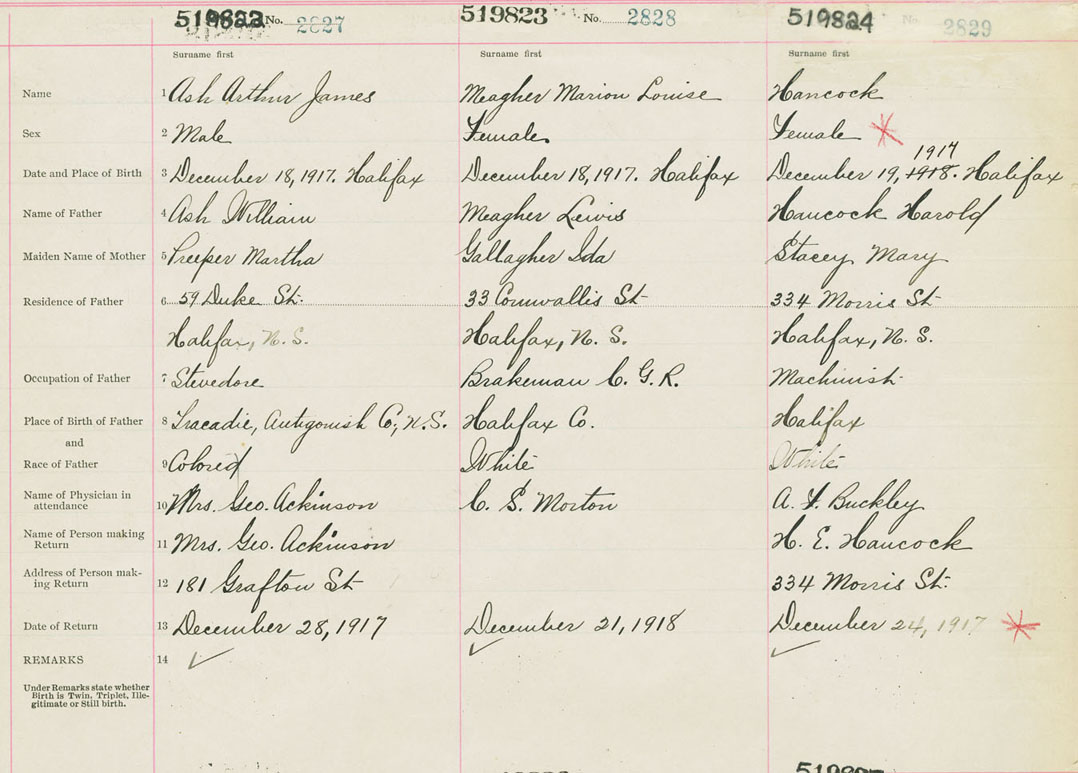 No. 2827 519823 No. 2828 519824 No. 2829
Surname first Surname first Surname first
Name 1 Ash Arthur James Meagher Marion Louise Hancock
Sex 2 Male Female Female
1917
Date and Place of Birth 3 December 18, 1917. Halifax December 18, 1917. Halifax December 19, 1918. Halifax
Name of Father 4 Ash William Meagher Lewis Hancock Harold
Maiden Name of Mother 5 Preeper Martha Gallagher Ida Stacey Mary
Residence of Father 6 59 Duke St. 33 Cornwallis St 334 Morris St
Halifax, N. S. Halifax, N. S. Halifax, N. S.
Occupation of Father 7 Stevedore Brakeman C. G. R. Machinist
Place of Birth of Father 8 Tracadie, Antigonish Co., N.S. Halifax Co. Halifax
and
Race of Father 9 Colored White White
Name of Physician in
attendance 10 Mrs. Geo. Ackinson C. S. Morton A. F. Buckley
Name of Person making
Return 11 Mrs. Geo. Ackinson H. E. Hancock
Address of Person mak-
ing Return 12 181 Grafton St 334 Morris St.
Date of Return 13 December 28, 1917 December 21, 1918 December 24, 1917
REMARKS 14
Under Remarks state whether
Birth is Twin, Triplet, Ille-
gitimate or Still birth.